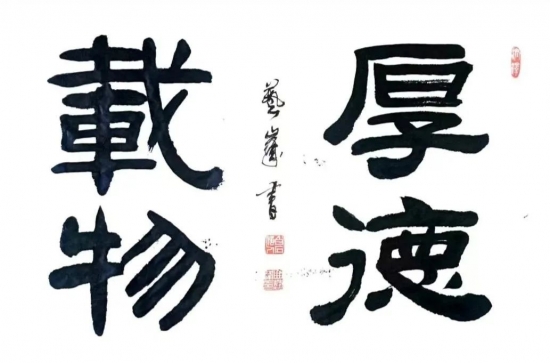 厚德
載物
藝書